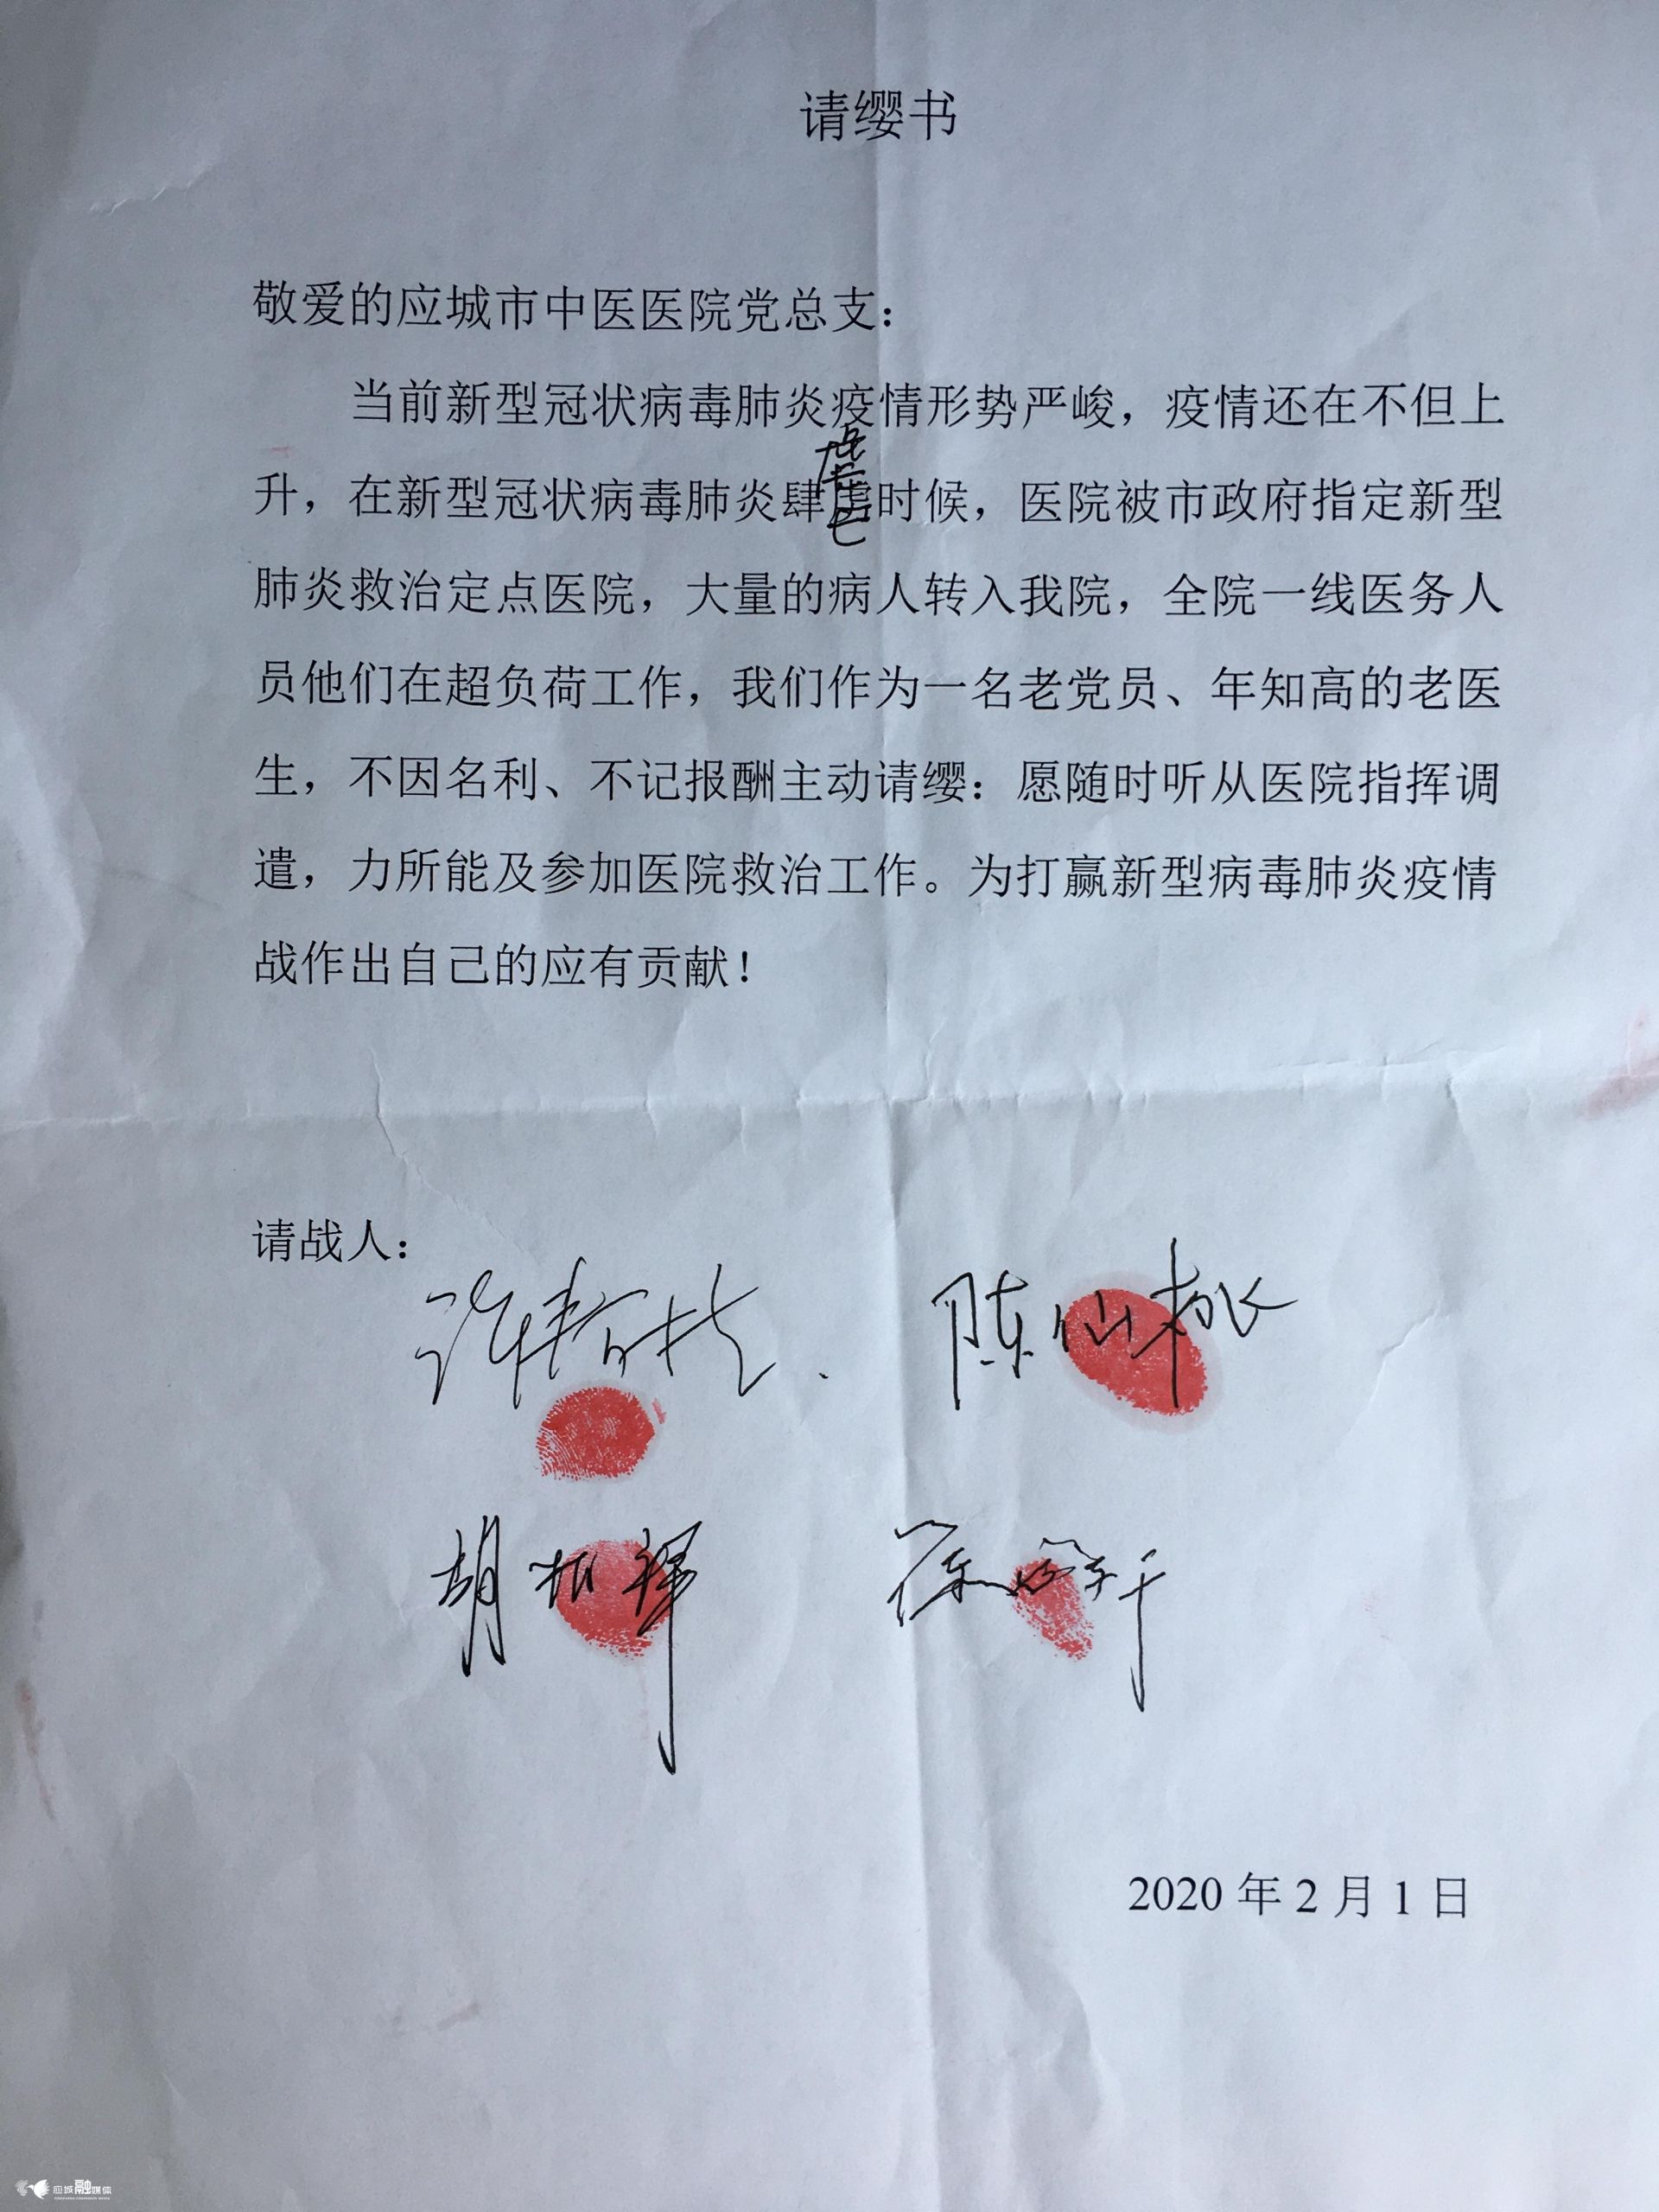 请缨书
敬爱的应城市中医医院党总支：
当前新型冠状病毒肺炎疫情形势严峻，疫情还在不但上
升，在新型冠状病毒肺炎肆虐时候，医院被市政府指定新型
肺炎救治定点医院，大量的病人转入我院，全院一线医务人
员他们在超负荷工作，我们作为一名老党员、年知高的老医
生，不因名利、不记报酬主动请缨：愿随时听从医院指挥调
遣，力所能及参加医院救治工作。为打赢新型病毒肺炎疫情
战作出自己的应有贡献！
请战人：
陈仙桃
胡振辉
2020年2月1日
应城融媒体